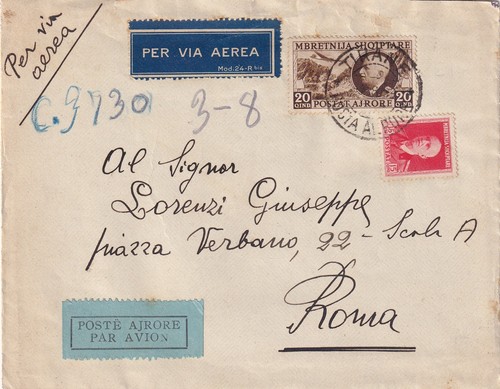 Per via
aerea
PER VIA AEREA
Mod. 24-R bis
MBRETNIJA SHQIPTARE
20 QIND. 20 QIND.
POSTA AJRORE
TIRANË
C. 3730
3-8
Al Signor
Lorenzi Giuseppe
piazza Verbano, 22 - Scala A
Roma
POSTË AJRORE
PAR AVION